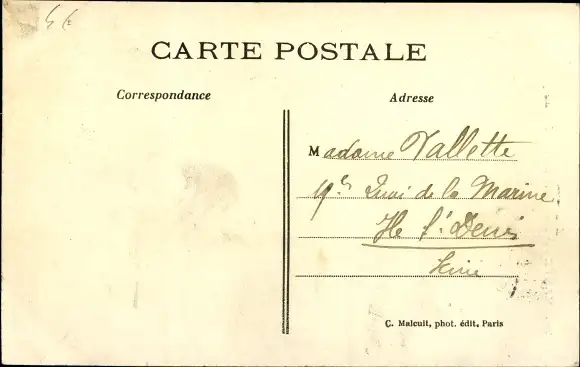 CARTE POSTALE
Correspondance
Adresse
Madame Vallette
Quai de la Marine
Ile St Denis
Seine
C. Malcuit, phot. édit, Paris